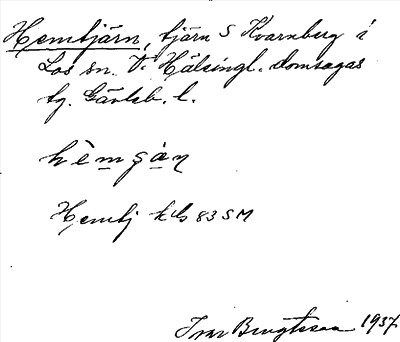 Hemtjärn, tjärn S Kvarnberg i
Los sn. V. Hälsingl. domsagas
tg. Gävleb. l.
hèmṣàn
Hemtj kbl 83 SM
Ivar Bengtsson 1937